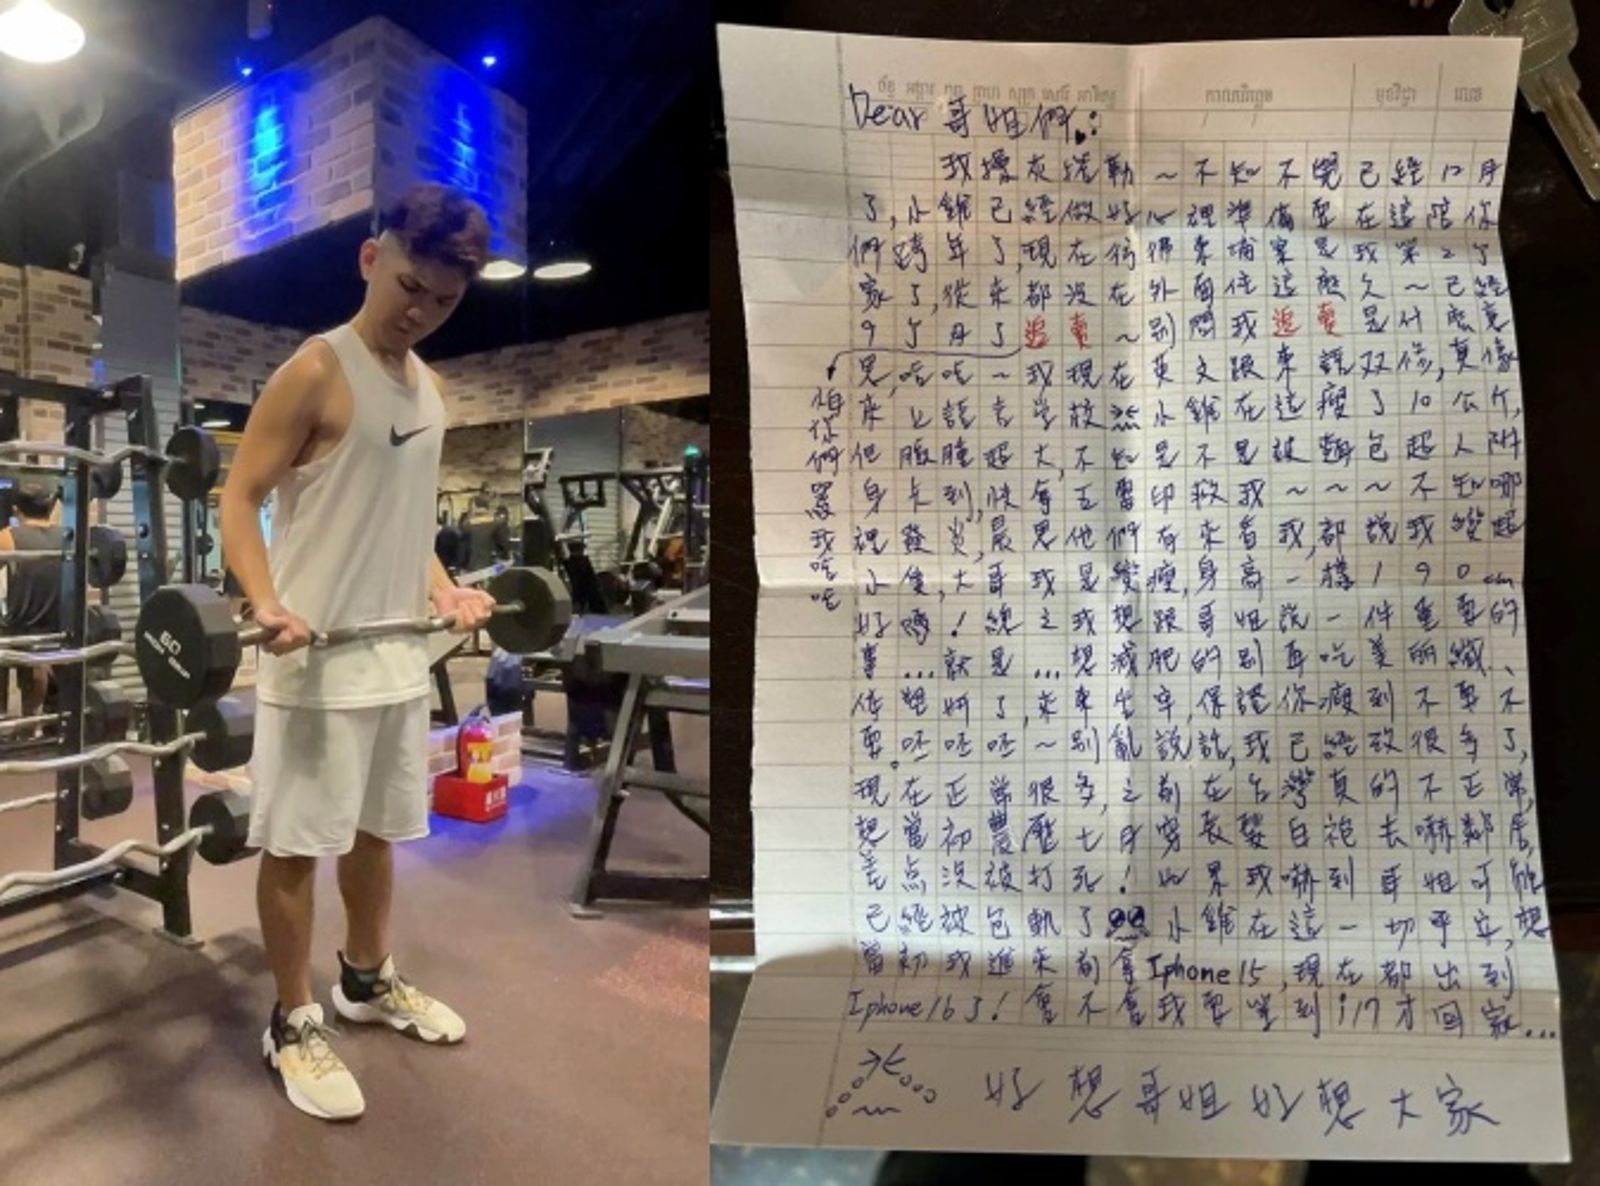 50
Dear 哥姐們:
我擾灰挖勒～不知不覺已經12月
了,小雞已經做好心理準備要在這陪你
們跨年了,現在彷彿柬埔寨是我第2个
家了,從來都沒在外面住這麼久～已經
9个月了追賣～別問我追賣是什麼意
思,哈哈～我現在英文跟柬語双修,真像
來上語言學校 小雞在這瘦了10公斤,
但腹腫超大,不知是不是被麵包超人附
身卡到,快拿五雷印救我～～～不知哪
裡發炎,晨思他們有來看我,都說我變超
小隻,大哥我是變瘦,身高一樣190cm
好嗎!總之我想跟哥姐說一件重要的
事...就是...想減肥的別再吃美丽纖、
倍塑妍了,來柬坐牢,保證你瘦到不要不
要。呸呸呸～別亂說話,我已經改很多了,
現在正常很多,之前在台灣真的不正常,
想當初農歷七月穿長髮白袍去嚇鄰居,
差点沒被打死!如果我嚇到哥姐可能
已經被包軌了 小雞在這一切平安,想
當初我進來前拿Iphone 15,現在都出到
Iphone 16了!會不會我要坐到i17才回家...
好想哥姐好想大家
怕你們罵我哈哈